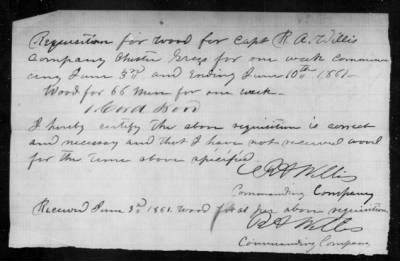 Requisition for wood for Capt R A. Willis
Company Chester Greys for one week commen
cing June 3rd and Ending June 10th 1861.
Wood for 66 Men for one week.
1. Cord Wood
I hereby certify the above requisition is correct
and necessary and that I have not received wood
for the time above specified
R A Willis
Commanding Company
Received June 3rd 1861. Wood as per above requisition
R A Willis
Commanding Company